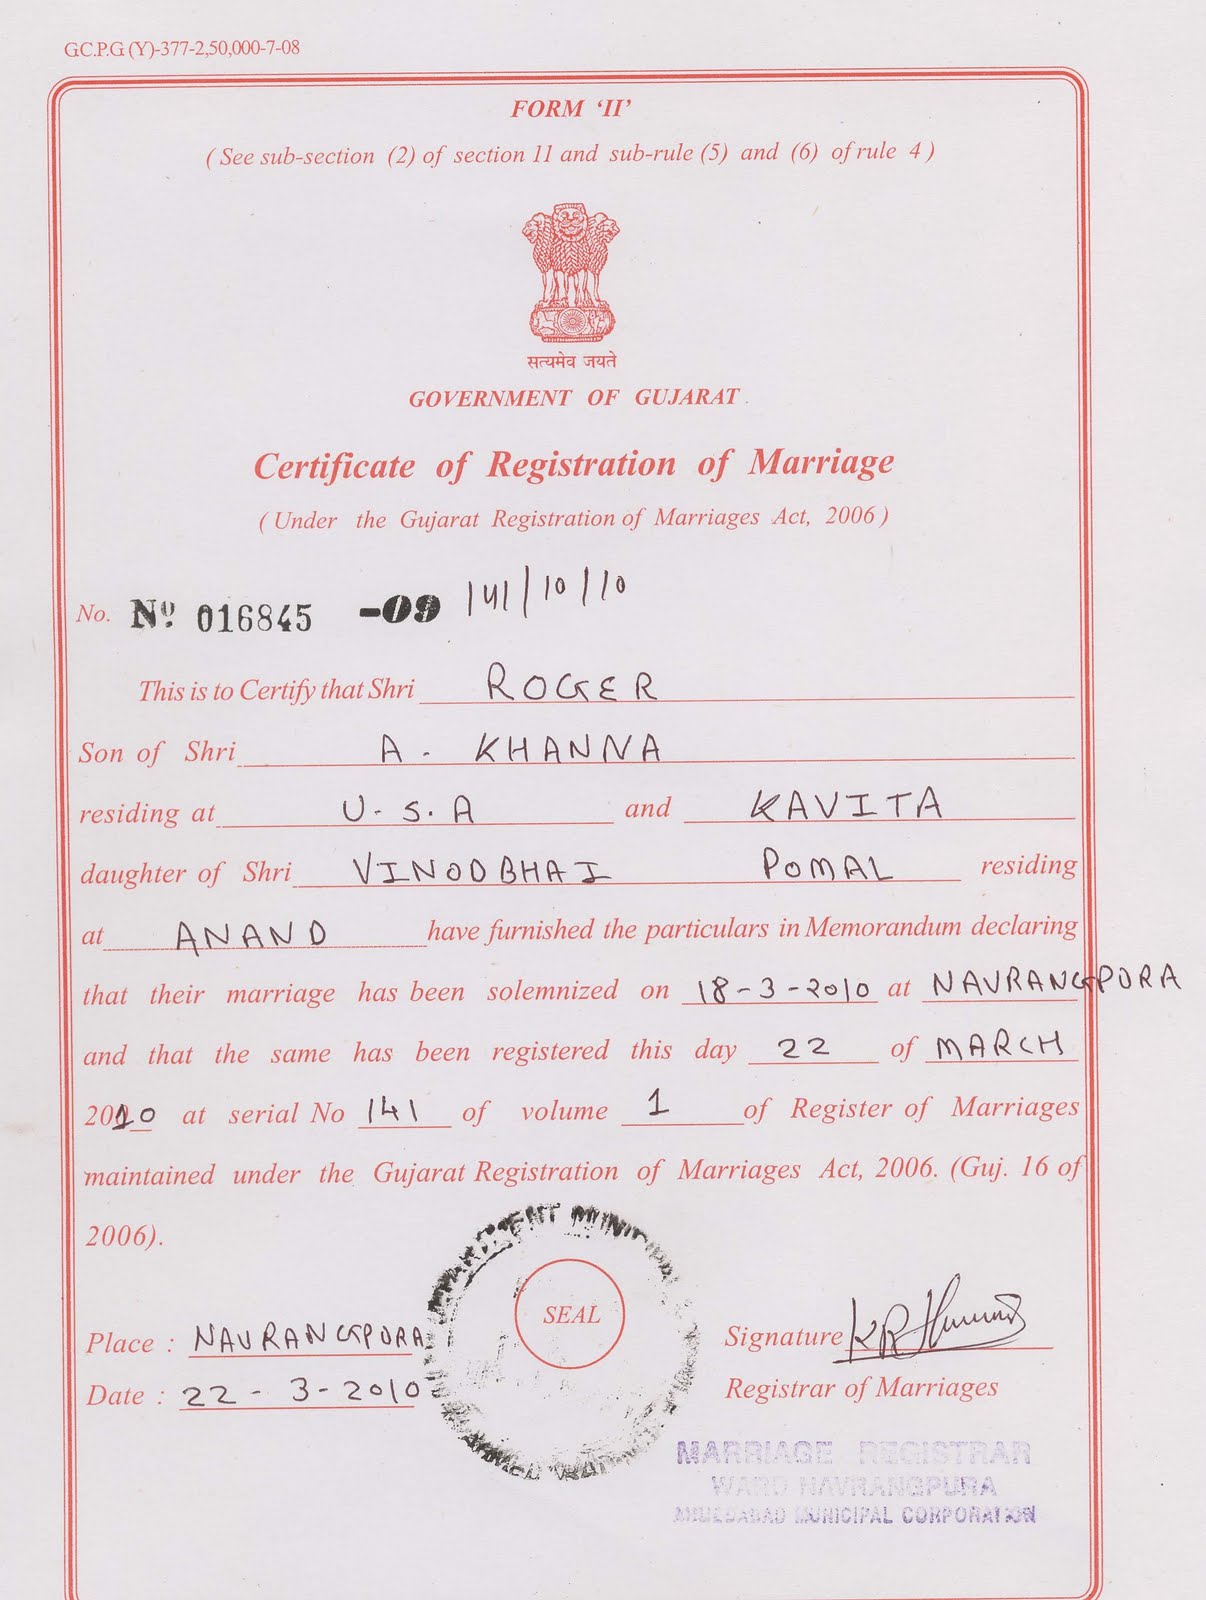 G.C.P.G (Y)-377-2,50,000-7-08
FORM ‘II’
( See sub-section (2) of section 11 and sub-rule (5) and (6) of rule 4 )
सत्यमेव जयते
GOVERNMENT OF GUJARAT
Certificate of Registration of Marriage
( Under the Gujarat Registration of Marriages Act, 2006 )
No. Nº 016845 -09 141/10/10
This is to Certify that Shri ROGER
Son of Shri A. KHANNA
residing at U.S.A and KAVITA
daughter of Shri VINODBHAI POMAL residing
at ANAND have furnished the particulars in Memorandum declaring
that their marriage has been solemnized on 18-3-2010 at NAVRANGPURA
and that the same has been registered this day 22 of MARCH
2010 at serial No 141 of volume 1 of Register of Marriages
maintained under the Gujarat Registration of Marriages Act, 2006. (Guj. 16 of
2006).
MUNICIPAL
SEAL
Place : NAVRANGPURA
Signature
Date : 22-3-2010
Registrar of Marriages
MARRIAGE REGISTRAR
WARD NAVRANGPURA
AHMEDABAD MUNICIPAL CORPORATION